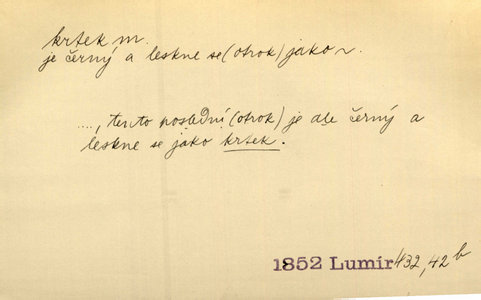 krtek m.
je černý a leskne se (otrok) jako ~.
...., tento poslední (otrok) je ale černý a
leskne se jako krtek.
1852 Lumír 432, 42 b